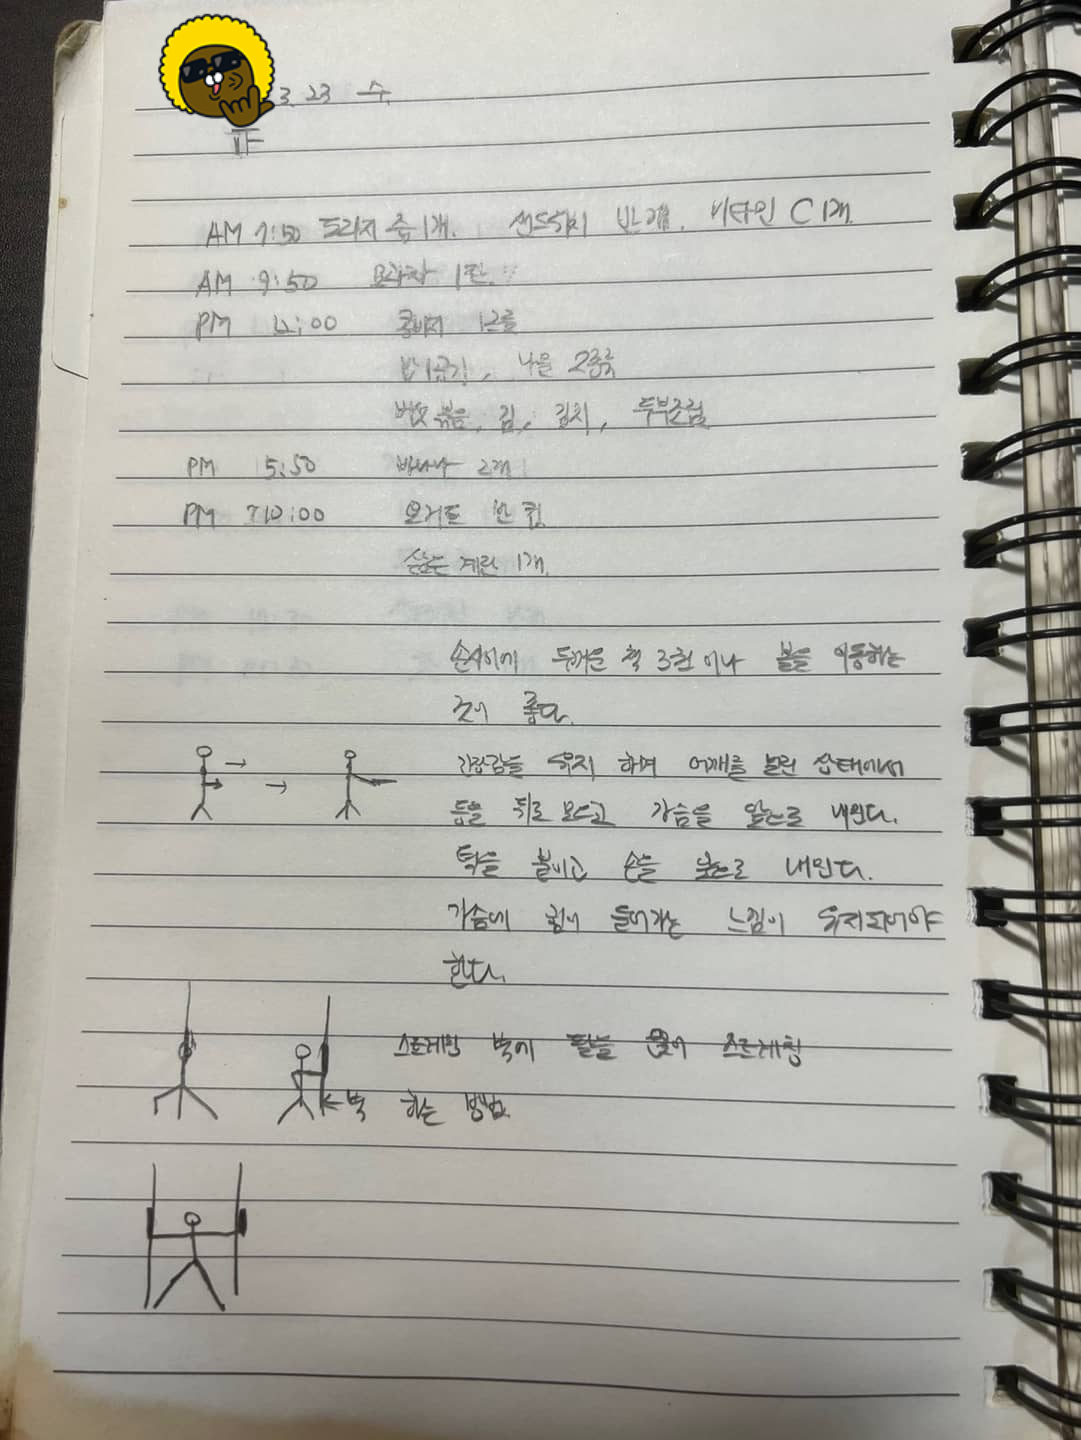 3. 23 수.
AM 7:50 도라지 즙 1개. 샌드위치 반 개. 비타민 C 1개.
AM 9:50 모과차 1잔.
PM 12:00 콩비지 1그릇
밥 1공기, 나물 2종류
버섯 볶음, 김, 김치, 두부조림
PM 5:50 바나나 2개
PM 7:00 요거트 반 컵
삶은 계란 1개.
손사이에 두꺼운 책 3권 이나 볼을 이동하는
것이 좋다.
긴장감을 유지 하며 어깨를 눌린 상태에서
등을 뒤로 모으고 가슴을 앞으로 내민다.
턱을 붙이고 손을 앞으로 내민다.
가슴에 힘이 들어가는 느낌이 유지되어야
한다.
스트레칭 벽에 팔을 스트레칭
벽 하는 방법.